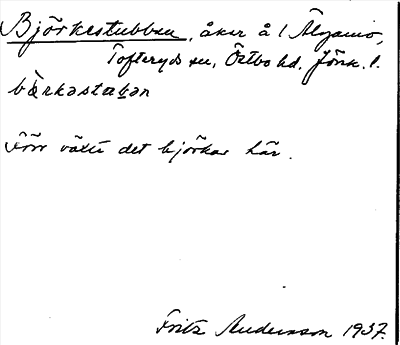 Björkestubben, åker å 1 Älganäs,
Tofteryds sn, Östbo hd. Jönk. l.
Förr växte det björkar här.
Fritz Andersson 1937.